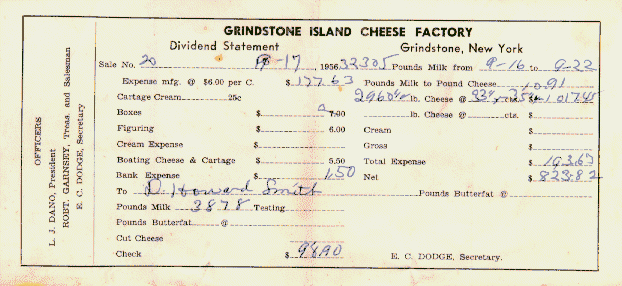 GRINDSTONE ISLAND CHEESE FACTORY
Dividend Statement Grindstone, New York
Sale No. 20 -17, 1956 32305 Pounds Milk from 9-16 to 9-22
Expense mfg. @ $6.00 per C. $ 177.63 Pounds Milk to Pound Cheese 10.91
Cartage Cream 25c 2960 1/2 lb. Cheese @ cts. $ 1017.45
Boxes $ 7.00 lb. Cheese @ cts. $
Figuring 6.00 Cream
Cream Expense $ Gross $
Boating Cheese & Cartage $ 8.50 Total Expense $ 193.63
Bank Expense $ 1.50 Net $ 823.82
To D. Howard Smith Pounds Butterfat @
Pounds Milk 3878 Testing
Pounds Butterfat @
Cut Cheese
Check $ 98.90 E. C. DODGE, Secretary.
OFFICERS
L. J. DANO, President
ROBT. GARNSEY, Treas. and Salesman
E. C. DODGE, Secretary